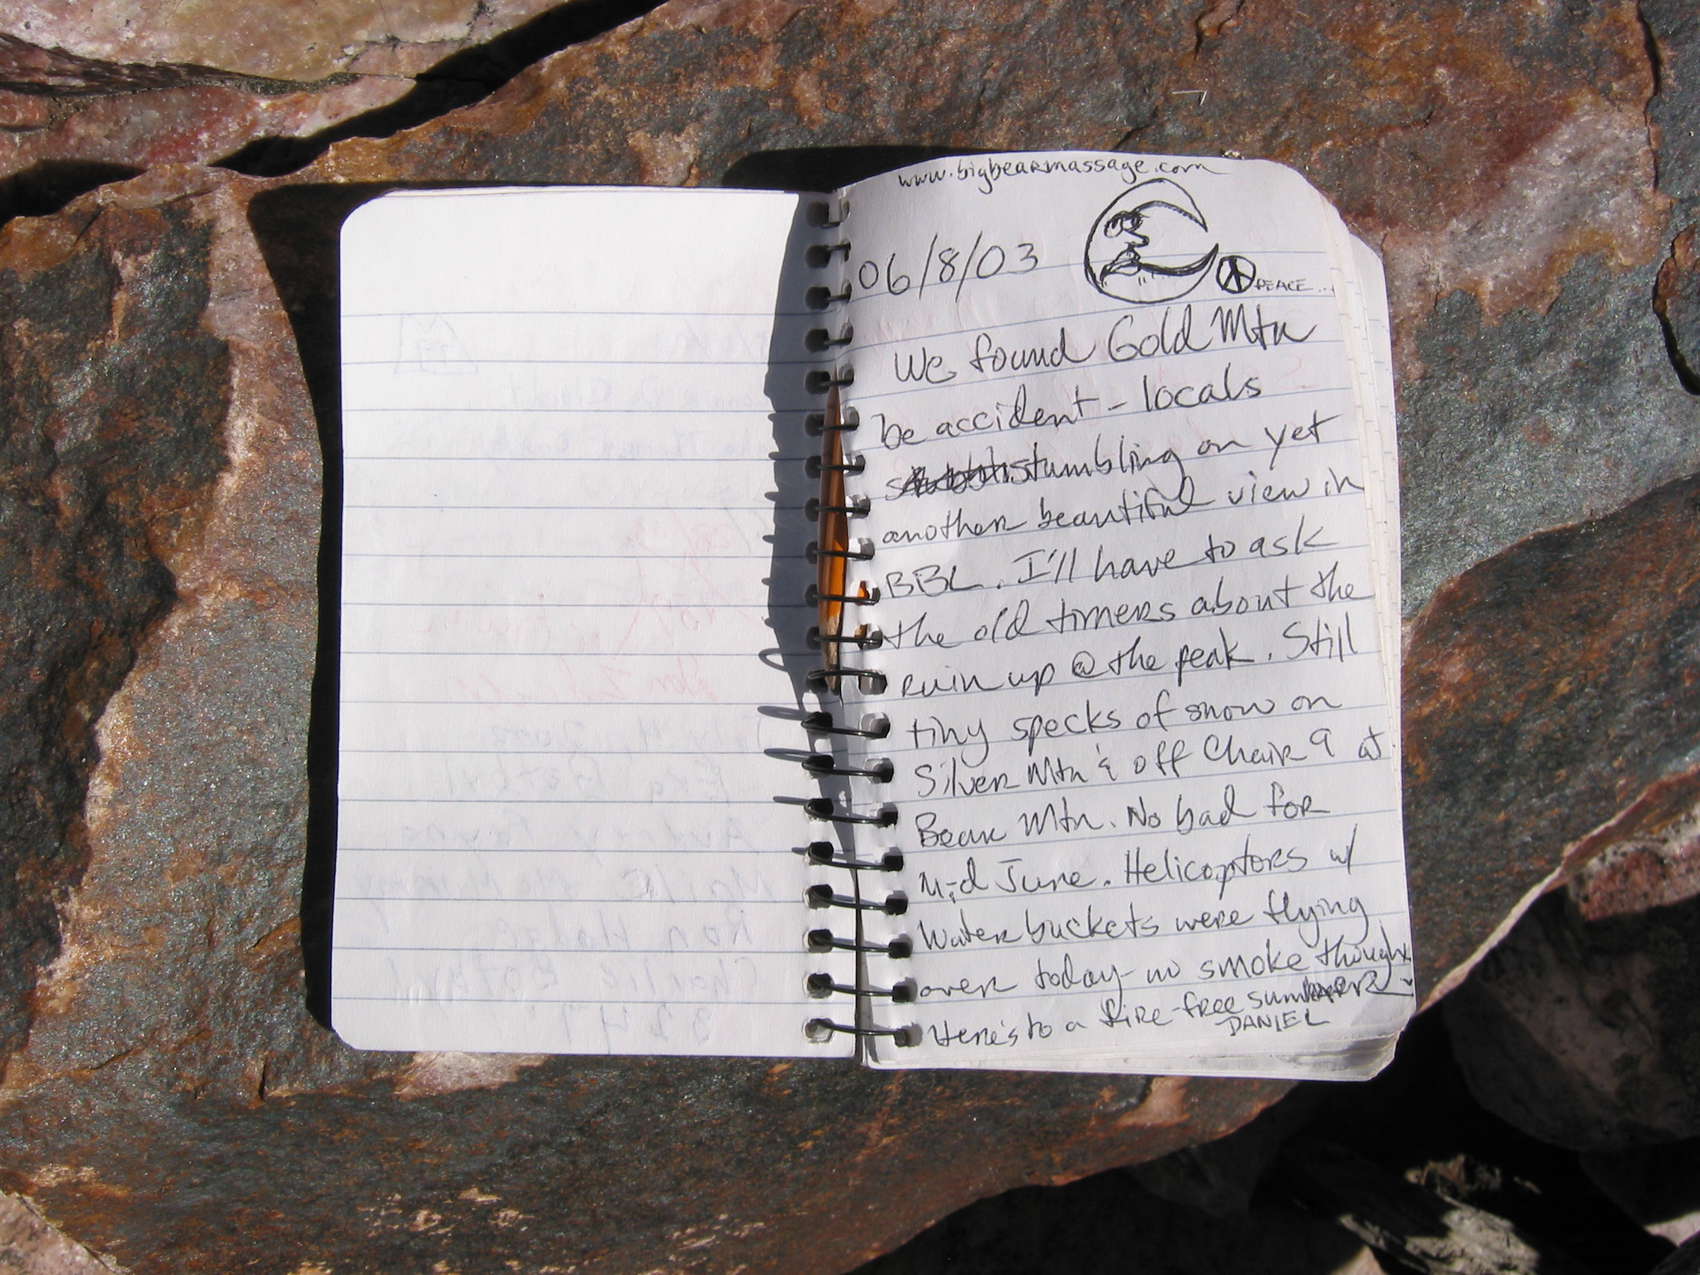 www.bigbearmassage.com
06/8/03
PEACE...
We found Gold Mtn
be accident - locals
stumbling on yet
another beautiful view in
BBL. I'll have to ask
the old timers about the
ruin up @ the peak. Still
tiny specks of snow on
Silver Mtn & off Chair 9 at
Bear Mtn. No bad for
Mid June. Helicoptors w/
Water buckets were flying
over today - no smoke though
Here's to a fire-free summer
DANIEL